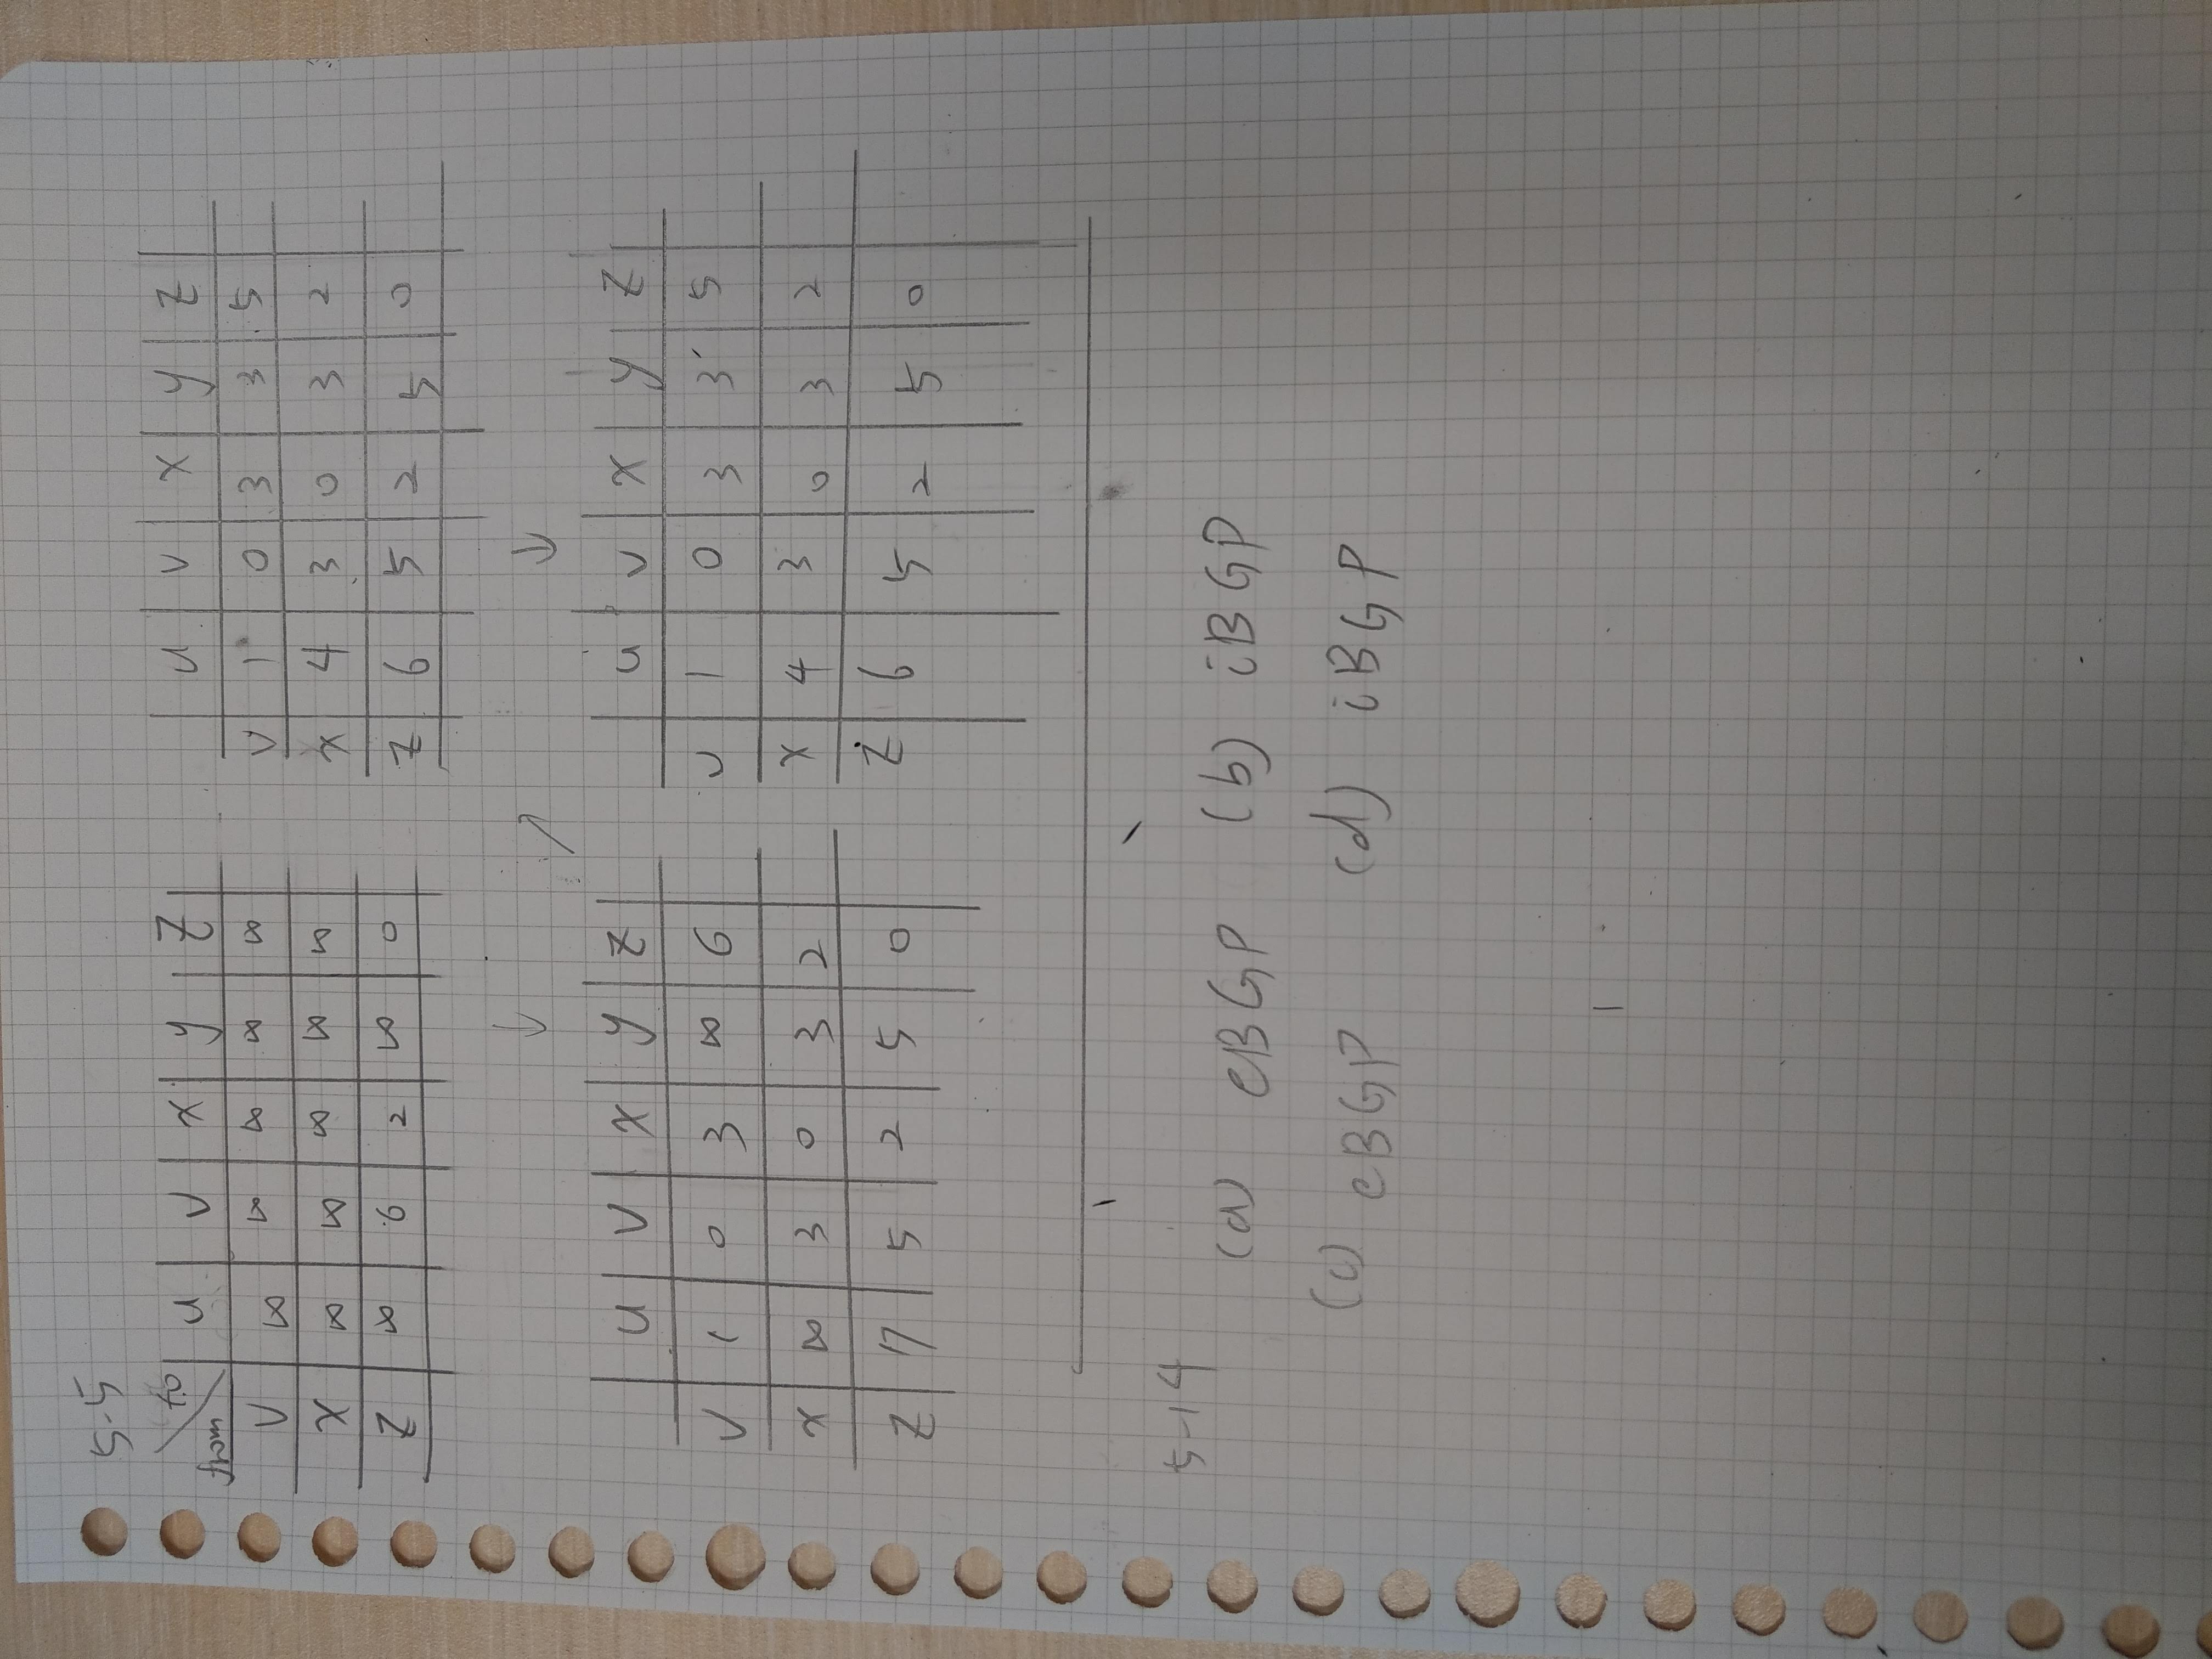 5-5
to
from u v x y z
v ∞ ∞ ∞ ∞ ∞
x ∞ ∞ ∞ ∞ ∞
z ∞ 6 2 ∞ 0
↓
u v x y z
v 1 0 3 ∞ 6
x ∞ 3 0 3 2
z 7 5 2 5 0
↗
u v x y z
v 1 0 3 3 5
x 4 3 0 3 2
z 6 5 2 5 0
↓
u v x y z
v 1 0 3 3 5
x 4 3 0 3 2
z 6 5 2 5 0
5-14
(a) eBGP (b) iBGP
(c) eBGP (d) iBGP